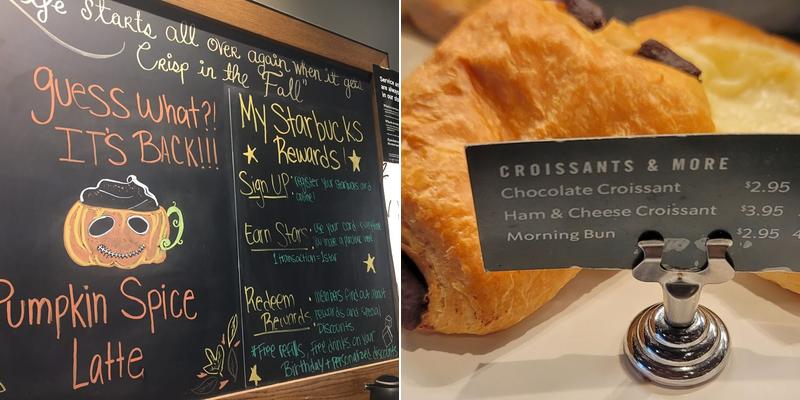 Life starts all over again when it gets
Crisp in the Fall"
guess what?!
IT'S BACK!!!
Pumpkin Spice
Latte
My Starbucks
Rewards!
Sign UP: register your Starbucks card
online!
Earn Stars: use your card - everytime
to make a purchase
1 transaction = 1 star
Redeem
Rewards
• members find out about
rewards and special
Discounts
*Free refills, free drinks on your
Birthday + personalized discounts
Service
are always
in our
CROISSANTS & MORE
Chocolate Croissant $2.95
Ham & Cheese Croissant $3.95
Morning Bun $2.95 4